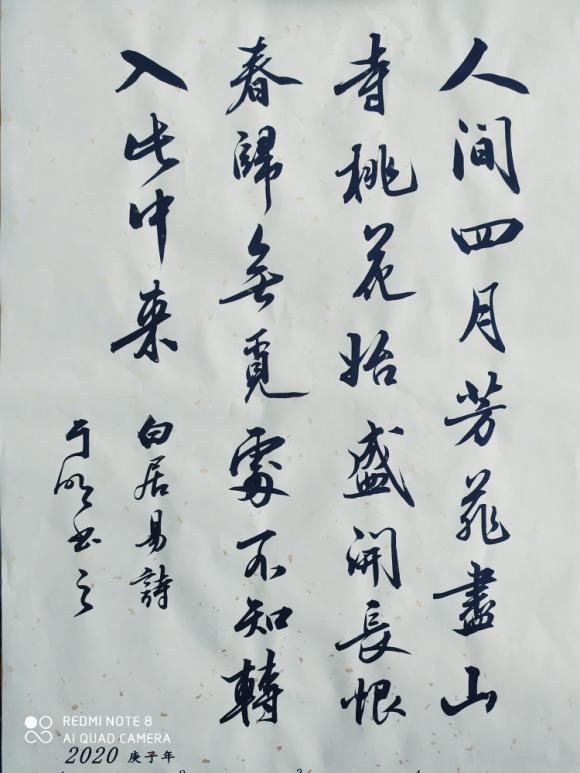 人间四月芳菲盡山
寺桃花始盛開長恨
春歸無覓處不知轉
入此中来
白居易詩
书之
REDMI NOTE 8
AI QUAD CAMERA
2020 庚子年